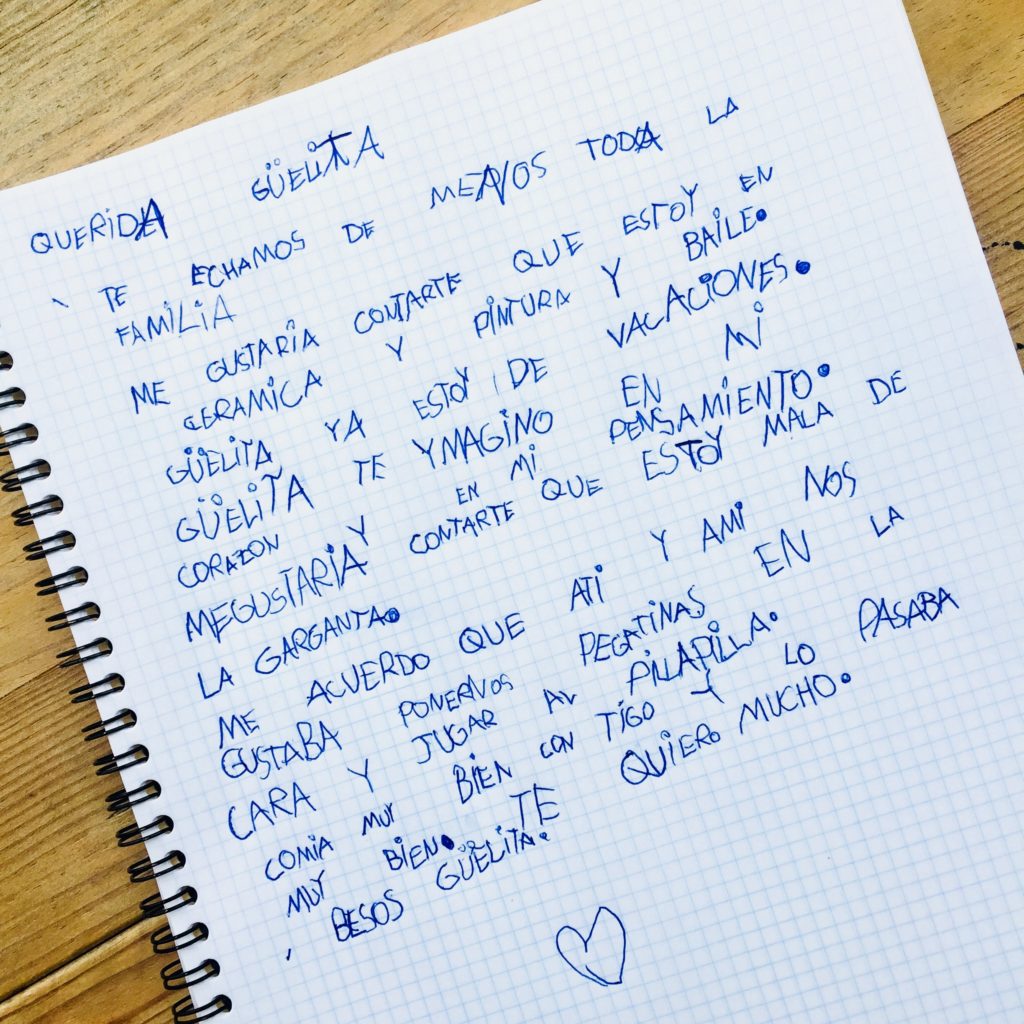 QUERIDA GÜELITA
TE ECHAMOS DE MENOS TODA LA
FAMILIA
ME GUSTARIA CONTARTE QUE ESTOY EN
CERAMICA Y PINTURA Y BAILE.
GÜELITA YA ESTOY DE VACACIONES.
GÜELITA TE YMAGINO EN MI
CORAZON Y EN MI PENSAMIENTO.
MEGUSTARIA CONTARTE QUE ESTOY MALA DE
LA GARGANTA.
ME ACUERDO QUE ATI Y AMI NOS
GUSTABA PONERNOS PEGATINAS EN LA
CARA Y JUGAR AL PILAPILLA.
COMIA MUY BIEN CON TIGO Y LO PASABA
MUY BIEN. TE QUIERO MUCHO.
, BESOS GÜELITA.